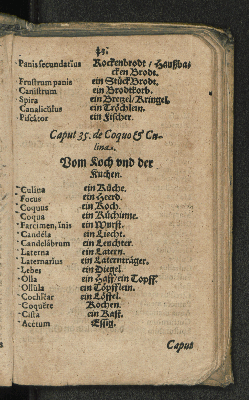 35.
Panis secundarius Rockenbrodt / Haußba-
cken Brodt.
Frustrum panis ein Stück Brodt.
Canistrum ein Brodtkorb.
Spira ein Bretzel/Kringel.
Canaliculus ein Tröchlein.
Piscator ein Fischer.
Caput 35. de Coquo & Cu-
lina.
Vom Koch vnd der
Kuchen.
Culina ein Küche.
Focus ein Heerd.
Coquus ein Koch.
Coqua ein Köchinne.
Farcimen, inis ein Wurst.
Candela ein Liecht.
Candelabrum ein Leuchter.
Laterna ein Latern.
Laternarius ein Laternträger.
Lebes ein Diegel.
Olla ein Haff/ein Topff.
Ollula ein Töpfflein.
Cochlear ein Löffel.
Coquere Kochen.
Cista ein Kast.
Acetum Essig.
Caput